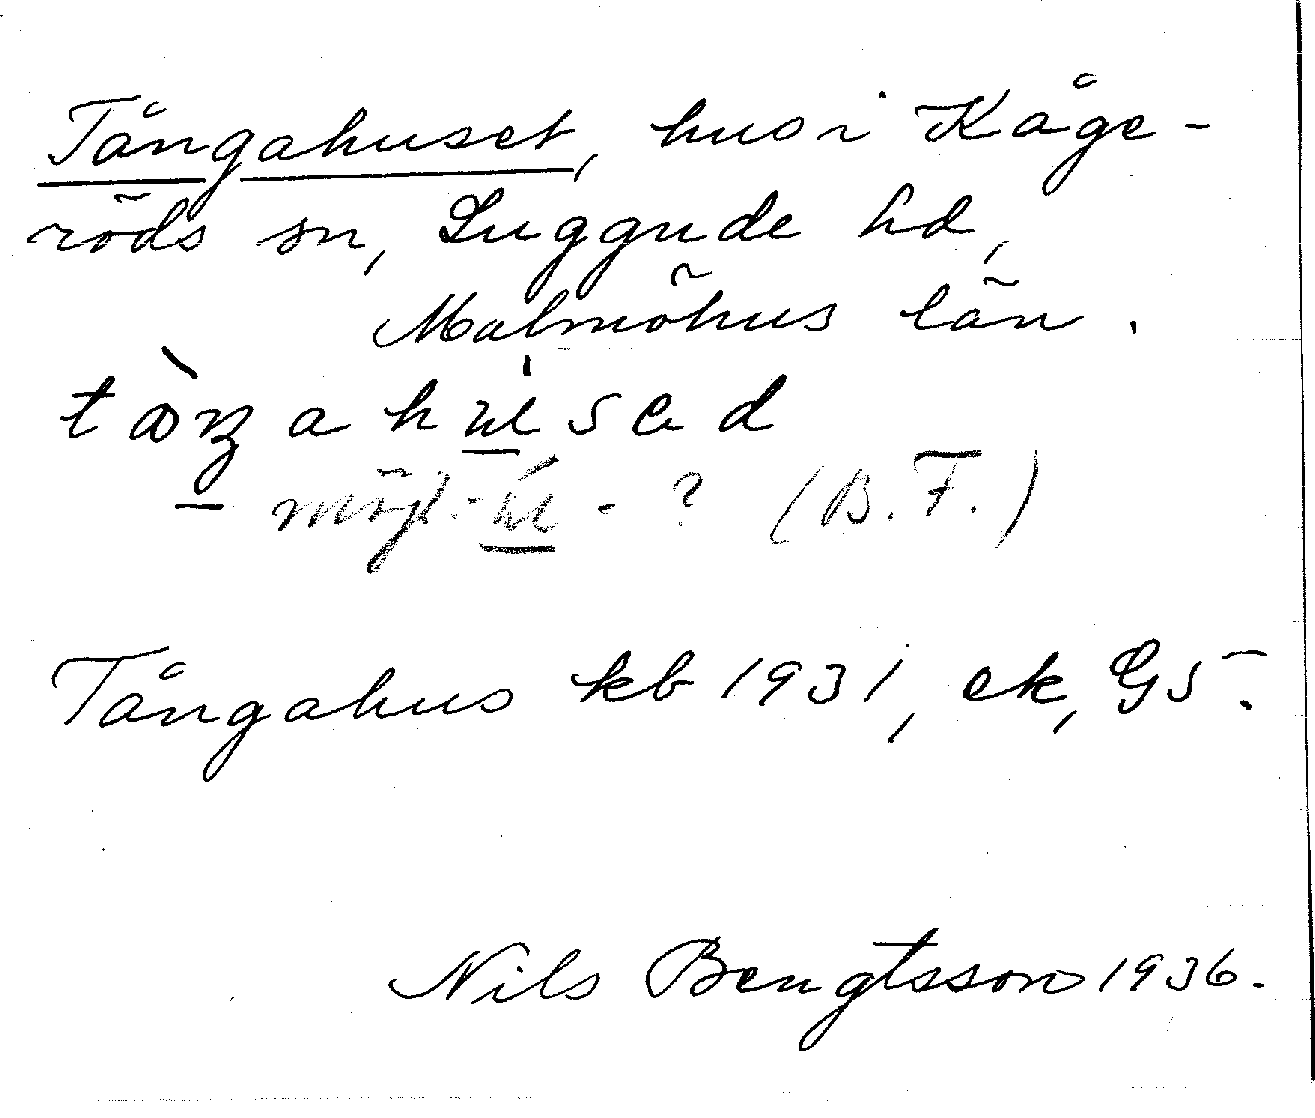 Tångahuset, hus i Kåge-
röds sn, Luggude hd,
Malmöhus län.
tàŋahu̲sed
möjl. -u̲- ? (B. F.)
Tångahus kb 1931, ek, G5.
Nils Bengtsson 1936.